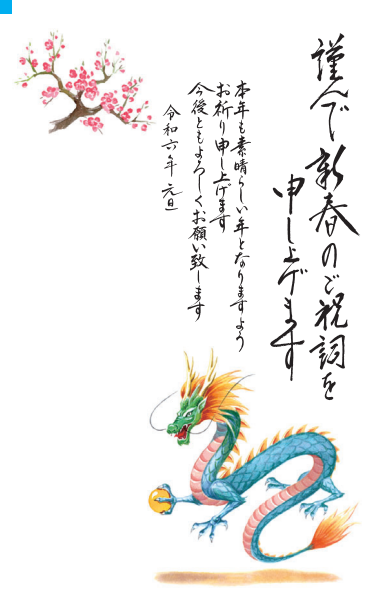 謹んで新春のご祝詞を
申し上げます
本年も素晴らしい年となりますよう
お祈り申し上げます
今後ともよろしくお願い致します
令和六年 元旦